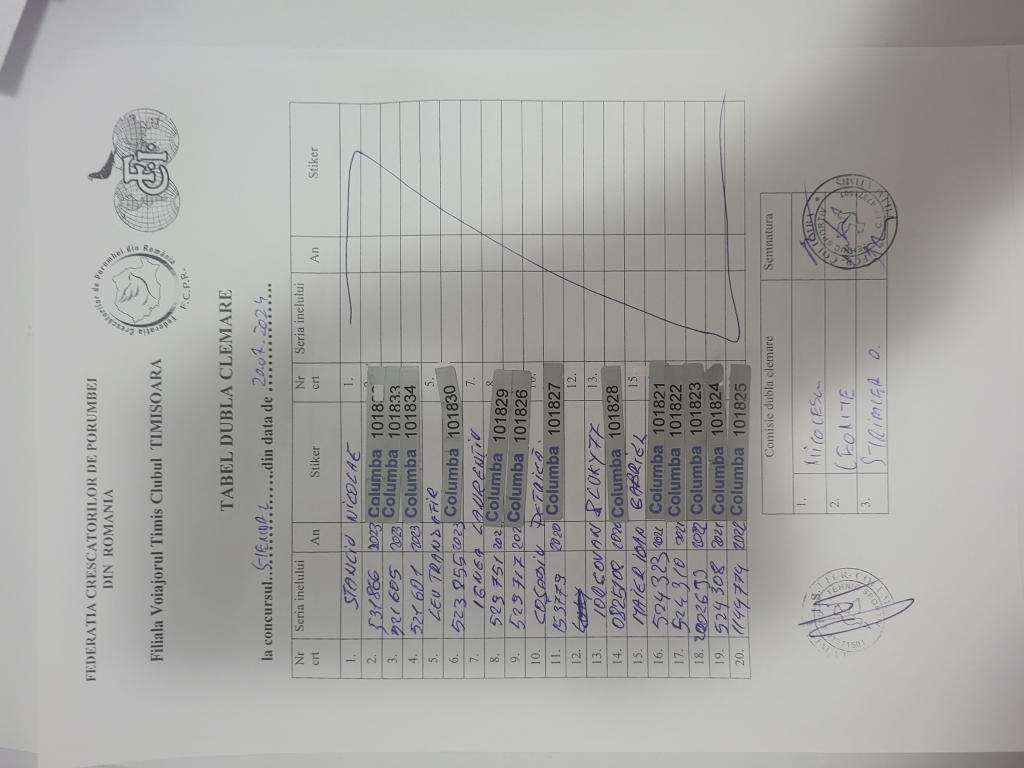 FEDERATIA CRESCATORILOR DE PORUMBEI
DIN ROMANIA
Federatia Crescătorilor de Porumbei din România
F.C.P.R.
Filiala Voiajorul Timis Clubul TIMISOARA
TABEL DUBLA CLEMARE
la concursul..STENDAL......din data de 20.07.2024
Nr crt Seria inelului An Stiker Nr crt Seria inelului An Stiker
1. STANCIU NICOLAE 1.
2. 531866 2023 Columba
3. 521605 2023 Columba 101833
4. 521601 2023 Columba 101834
5. LEU TRANDAFIR 5.
6. 523956 2023 Columba 101830
7. IGNEA LAURENTIU 7.
8. 529751 Columba 101829
9. 529717 Columba 101826
10. PETRICĂ 10.
11. 15379 2020 Columba 101827
12. 12.
13. IORGOVAN 13.
14. 025108 Columba 101828
15. MAIER IOAN GABRIEL 15
16. 524323 2021 Columba 101821
17. 524310 2021 Columba 101822
18. Columba 101823
19. 524308 2021 Columba 101824
20. 1149774 2022 Columba 101825
Comisie dubla clemare Semnatura
1.
2. LEONTE
3. O.